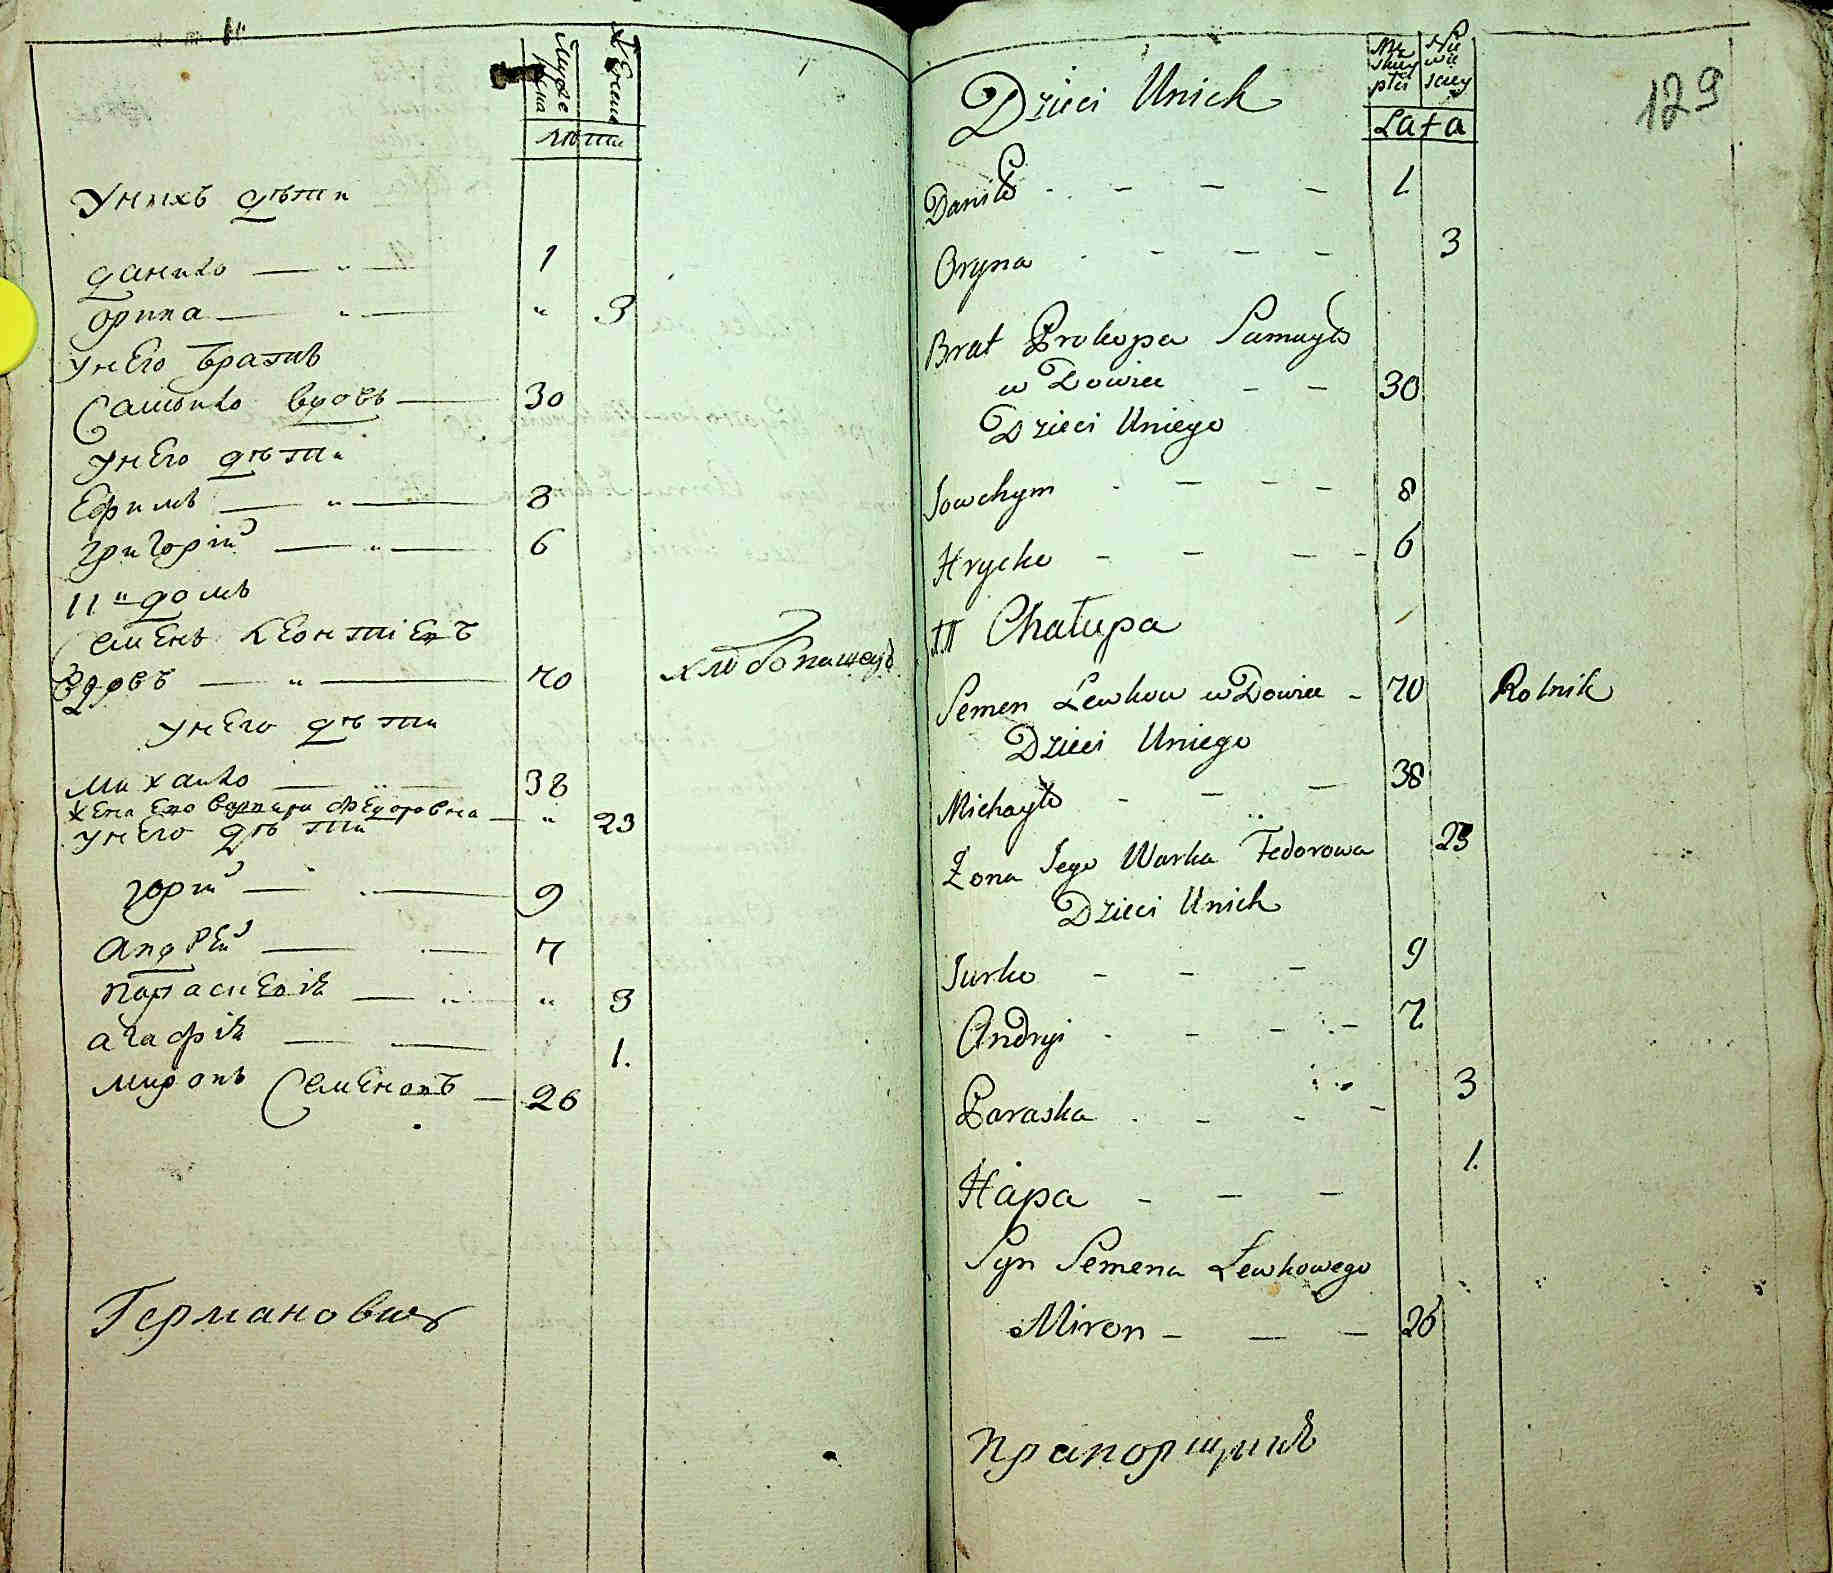 Муже
ска
Женска
лѣти
Унихъ дѣти
данило — " — 1
орина — " — " 3
унего братъ
Самойло вдовъ — 30
унего дѣти
Ефимъ — " — 8
григорій — " — 6
11 " домъ
Семенъ Леонтіевъ
Вдовъ — " — 70 хлебопашецъ
унего дѣти
михаило — " — 38
жена Его варвара Федоровна — " 23
унего дѣти
юрій — 9
андрей — 7
параскевія — " — " 3
агафія — 1.
миронъ Семеновъ — 26
Германовичъ
129
Mę
skiey
płci
Nie
wie
sciey
Lata
Dzieci Unich
Daniło - - - - 1
Oryna - - - - 3
Brat Prokopa Samuyło
w Dowiec - - 30
Dzieci Uniego
Jowchym - - - - 8
Hrycko - - - - 6
11 Chałupa
Semen Lewkow w Dowiec - 70 Rolnik
Dzieci Uniego
Michayło - - - 38
Żona Jego Warka Fedorowa 23
Dzieci Unich
Jurko - - - 9
Andryi - - - - 7
Paraska - - - - 3
Hapa - - - 1.
Syn Semena Lewkowego
Miron - - - 26
прапорщикъ